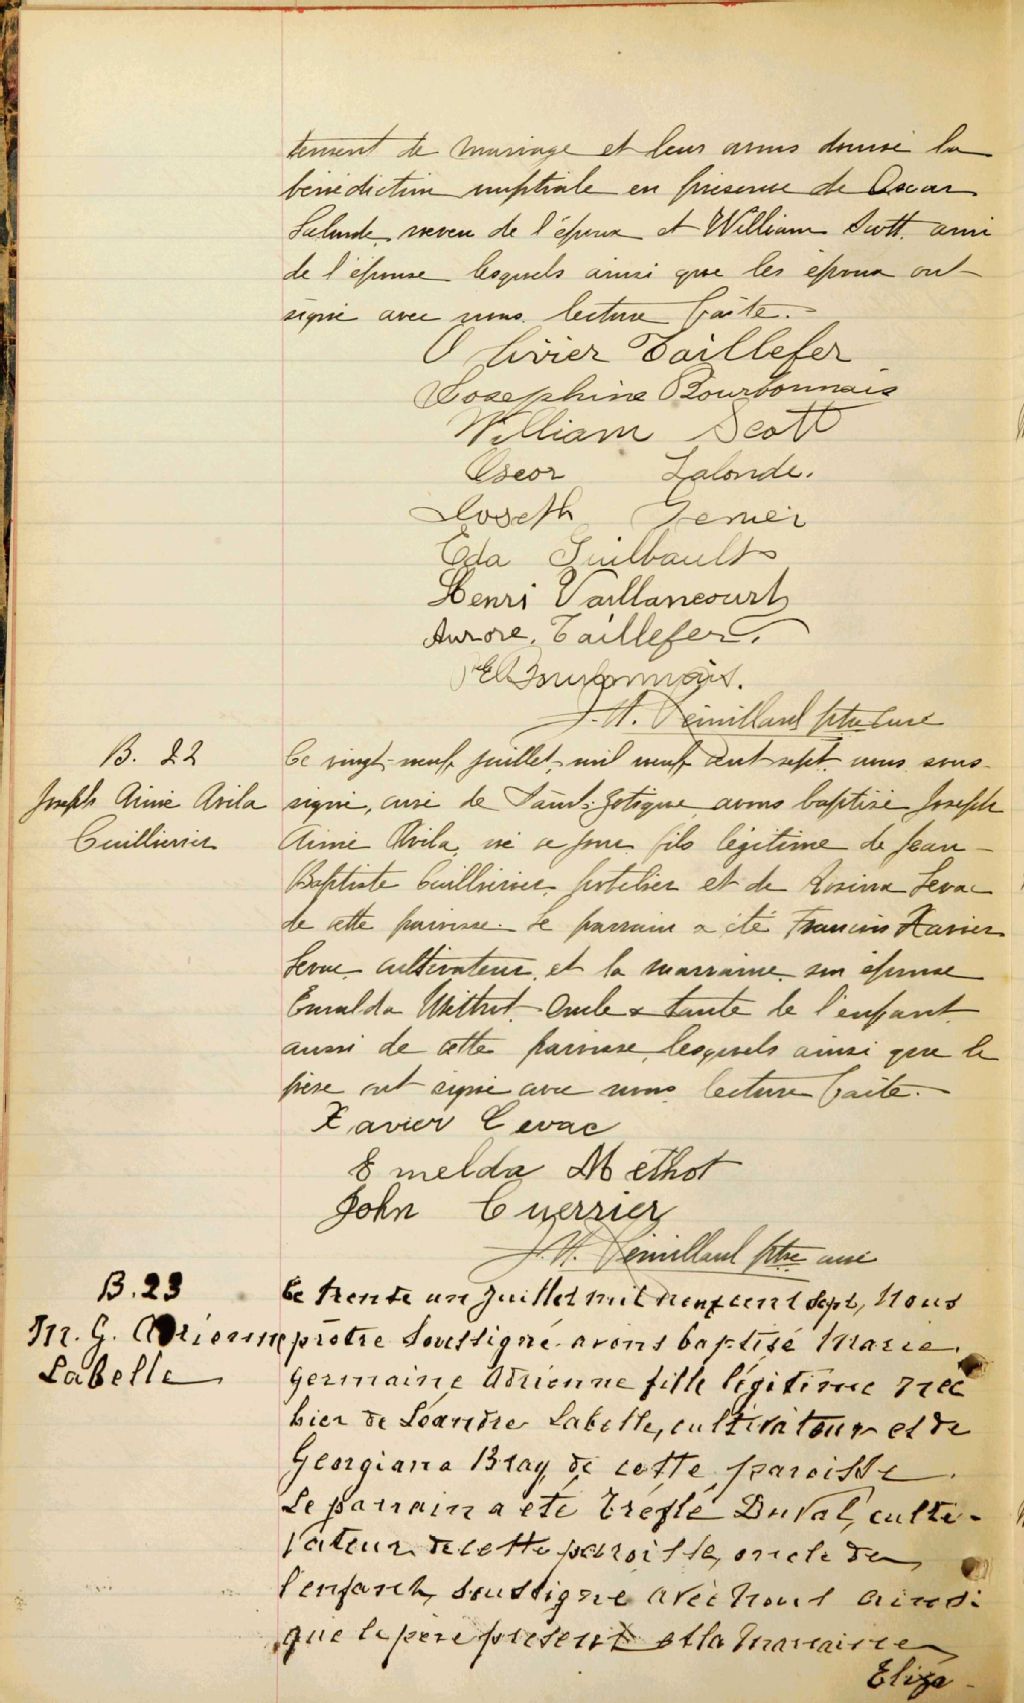 tement de mariage et leur avons donné la
bénédiction nuptiale en présence de Oscar
Lalonde, neveu de l'époux et William Scott ami
de l'épouse lesquels ainsi que les époux ont
signé avec nous. lecture faite.-
Olivier Taillefer
Josephine Bourbonnais
William Scott
Oscor Lalonde.
Joseph
Eda Guilbault
Henri Vaillancourt
Aurore. Taillefer.
Bourbonnais.
J. A. ptre curé
B. 22
Joseph Aimé Avila
Cuillierier
Ce vingt-neuf juillet, mil neuf cent sept nous sous-
signé, curé de Saint-Zotique avons baptisé Joseph
Aimé Avila, né ce jour fils légitime de Jean-
Baptiste Cuillierier hotelier et de Rosina Levac
de cette paroisse. Le parrain a été Francois Xavier
Levac cultivateur, et la marraine son épouse
Emelda Methot oncle & tante de l'enfant
aussi de cette paroisse, lesquels ainsi que le
père ont signé avec nous lecture faite.-
Xavier Levac
Emelda Methot
John Cuerrier
J. A. ptre curé
B. 23
M. G. Adrienne
Labelle
Le trente un Juillet mil neuf cent sept, Nous
prêtre Soussigné avons baptisé Marie
Germaine Adrienne fille légitime née
hier de Léandre Labelle, cultivateur et de
Georgiana Bray, de cette paroisse.
Le parrain a été Tréflé Duval, culti-
vateur de cette paroisse, oncle de
l'enfant, soussigné avec nous ainsi
que le père présent et la Marraine
Eliza-